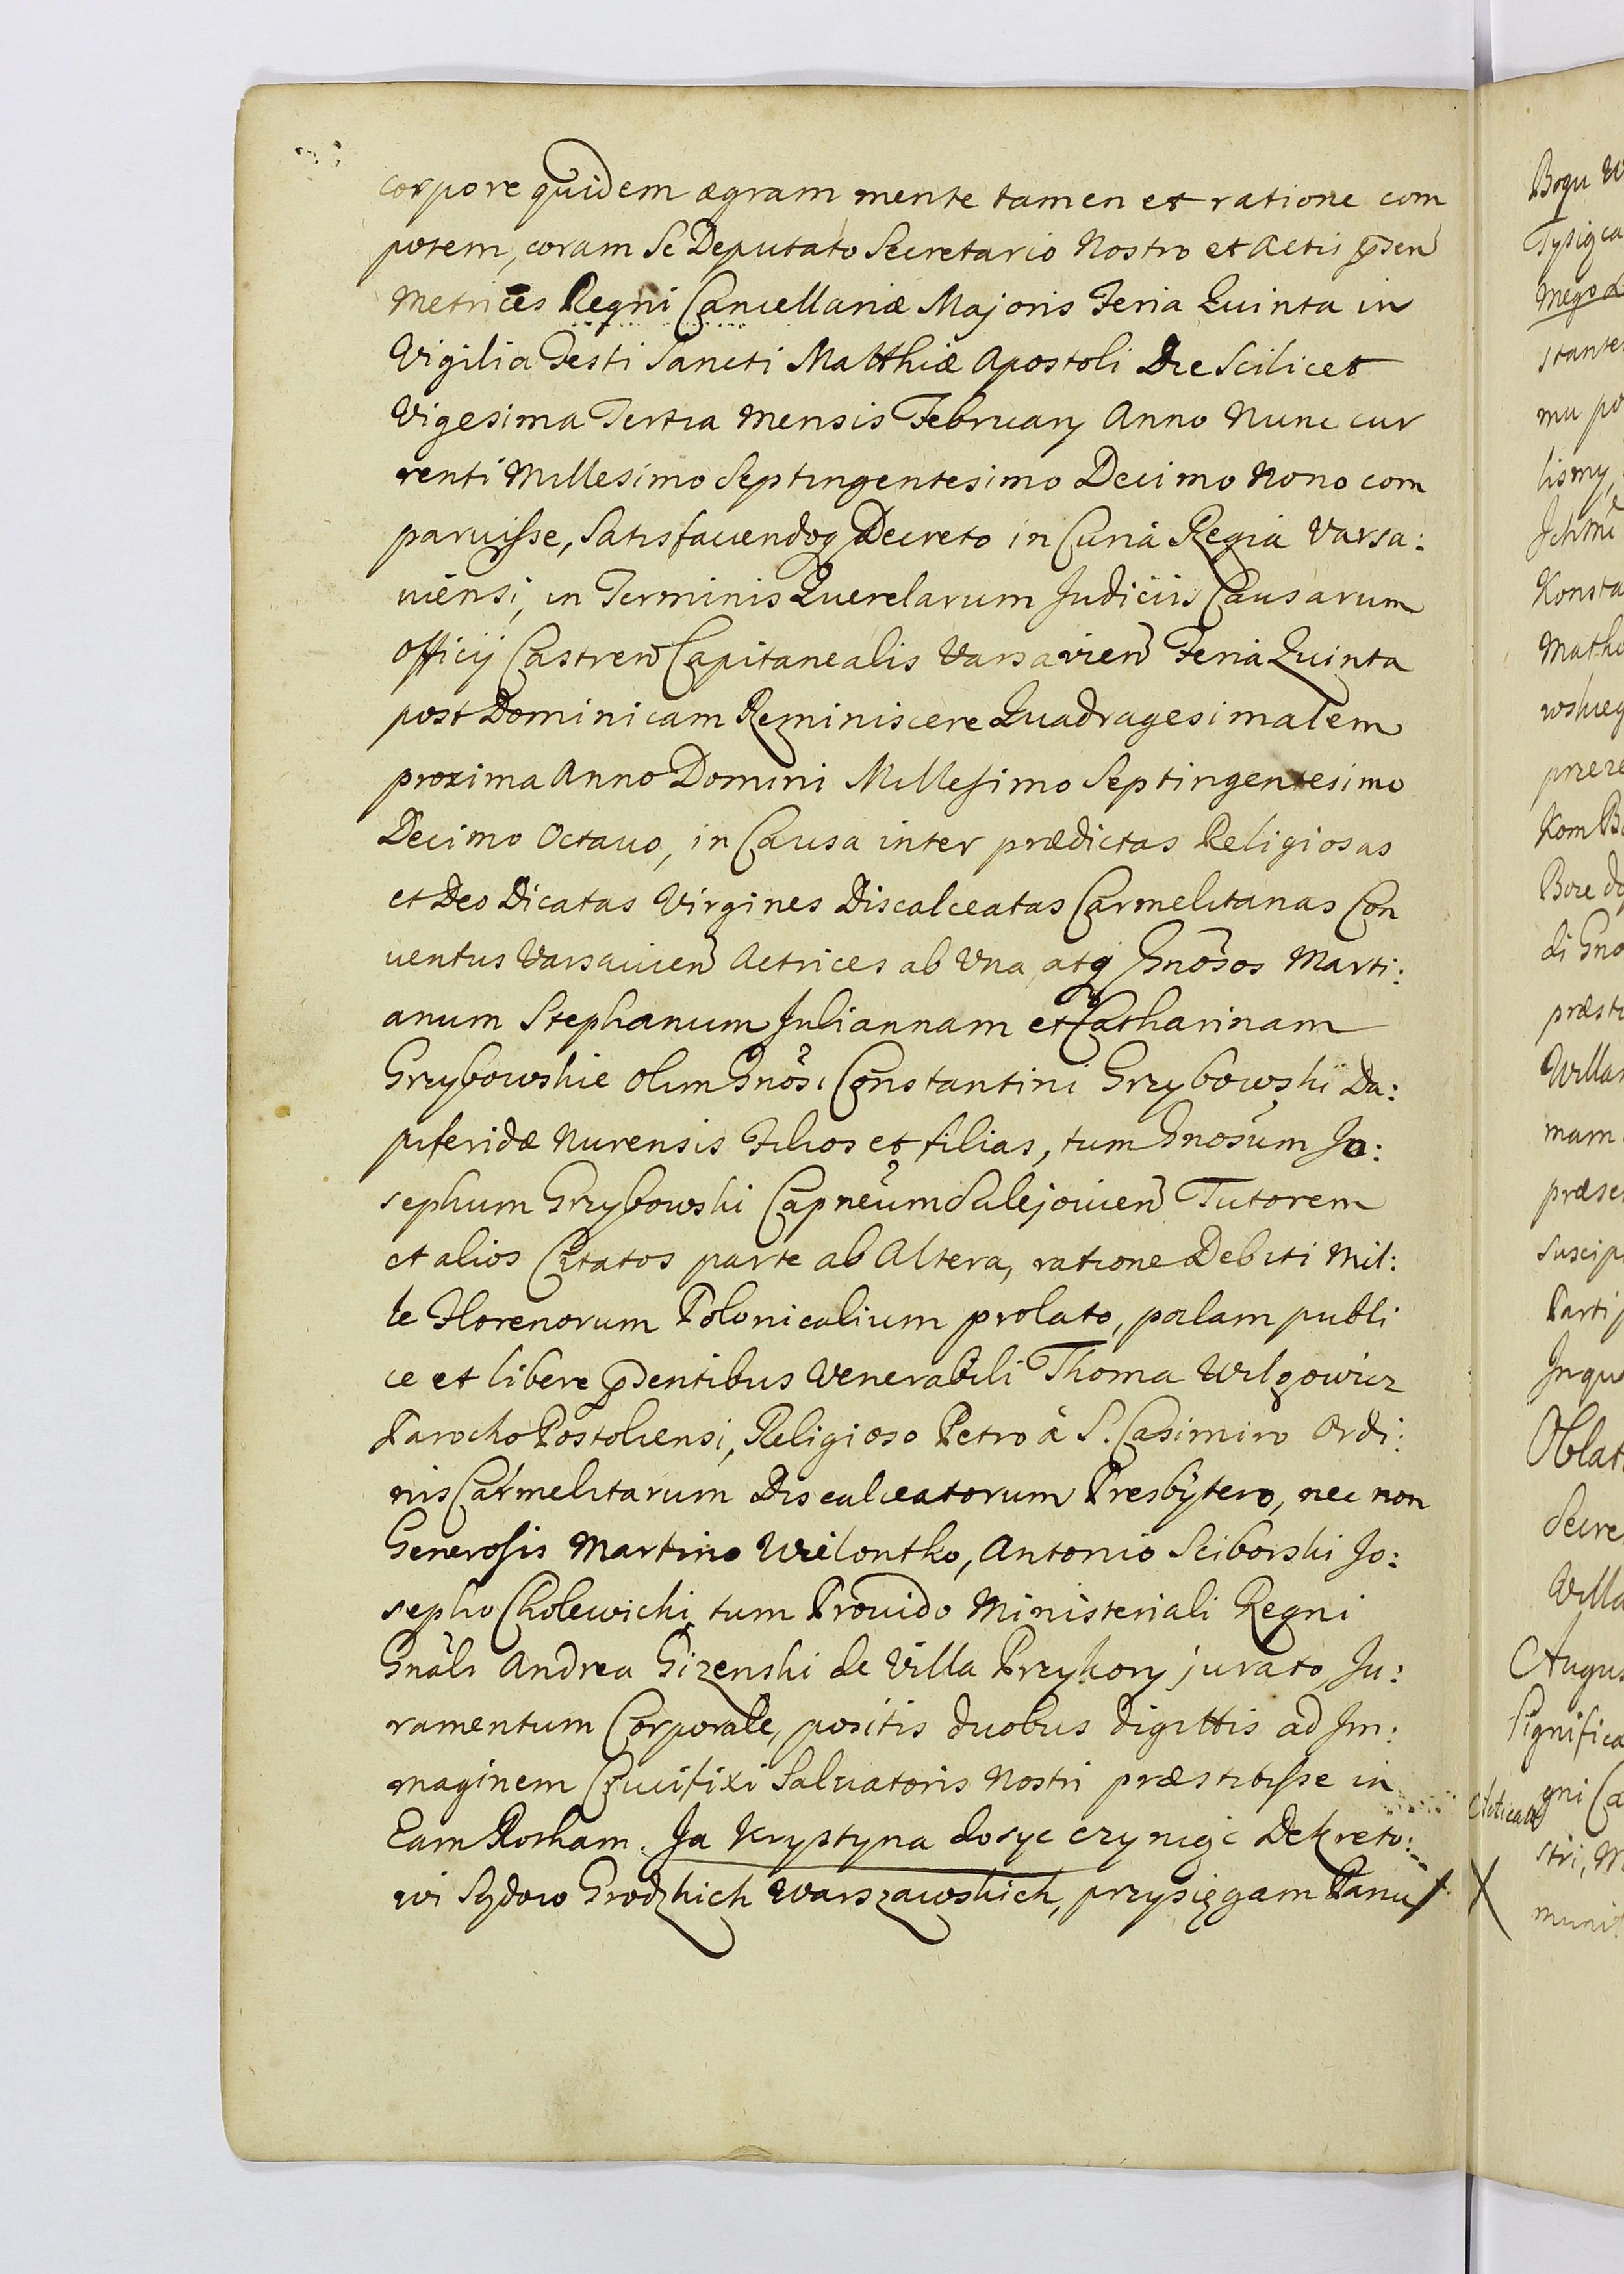 corpore quidem ægram mente tamen et ratione com
potem, coram Se Deputato Secretario Nostro et Actis p̄sen
Metrices Regni Cancellariæ Majoris Feria Quinta in
Vigilia Festi Sancti Matthiæ Apostoli Die Scilicet
Vigesima Tertia Mensis February Anno Nunc cur
renti Millesimo Septingentesimo Decimo Nono com
paruisse, Satisfaciendoq Decreto in Curiâ Regiâ Varsa:
uiensi, in Terminis Querelarum Judiciis Causarum
Officij Castren Capitanealis Varsavien Feria Quinta
post Dominicam Reminiscere Quadragesimalem
proxima Anno Domini Millesimo Septingentesimo
Decimo Octauo, in Causa inter prædictas Religiosas
et Deo Dicatas Virgines Discalceatas Carmelitanas Con
uentus Varsauien Actrices ab Vna, atq Gnosos Marti:
anum Stephanum Juliannam et Catharinam
Grzybowskie olim Gnosi Constantini Grzybowski Da:
piferidæ Nurensis Filios et filias, tum Gnosum Jo:
sephum Grzybowski Capneum Sulejouien Tutorem
et alios Citatos parte ab Altera, ratione Debiti Mil:
le Florenorum Polonicalium prolato, palam publi
ce et libere p̄dentibus Venerabili Thoma Wilgowicz
Parocho Postoliensi, Religioso Petro à S. Casimiro Ordi:
nis Carmelitarum Discalceatorum Presbytero, nec non
Generosis Martino Wielontko, Antonio Sciborski Jo:
sepho Cholewicki, tum Prouido Ministeriali Regni
Gnali Andrea Gizenski de Villa Przykory jurato, Ju:
ramentum Corporale, positis duobus digittis ad Im:
maginem Crucifixi Saluatoris Nostri præstitisse in
Eam Rotham. Ja Krystyna dosyc czyniąc Dekreto:
wi Sądow Grodzkich Warszawskich, przysięgam Panu